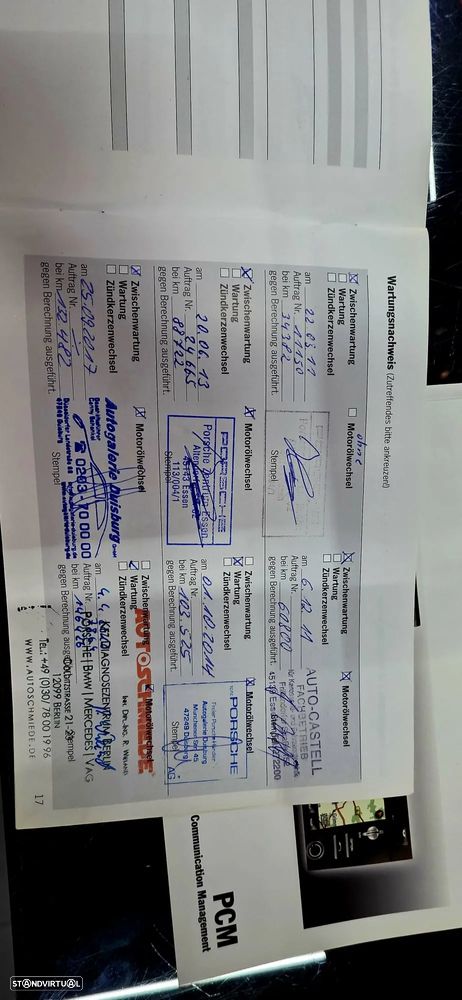 Wartungsnachweis (Zutreffendes bitte ankreuzen!)
Zwischenwartung
Wartung
Zündkerzenwechsel
ohne
Motorölwechsel
am 22.03.11
Auftrag Nr. 11150
bei km 34382
gegen Berechnung ausgeführt.
Stempel
Zwischenwartung
Wartung
Zündkerzenwechsel
Motorölwechsel
am 6.12.11
Auftrag Nr.
bei km 60800
gegen Berechnung ausgeführt.
AUTO-CASTELL
FACHBETRIEB
Zwischenwartung
Wartung
Zündkerzenwechsel
Motorölwechsel
am 20.06.13
Auftrag Nr. 24665
bei km 88723
gegen Berechnung ausgeführt.
PORSCHE
Porsche Zentrum Essen
45143 Essen
113/004/1
Stempel
Zwischenwartung
Wartung
Zündkerzenwechsel
Motorölwechsel
am 01.10.2014
Auftrag Nr.
bei km 103525
gegen Berechnung ausgeführt.
PORSCHE
Freier Porsche Händler
Autogalerie Duisburg
47249 Duisburg
Stempel
Zwischenwartung
Wartung
Zündkerzenwechsel
Motorölwechsel
am 25.09.2017
Auftrag Nr.
bei km 132.482
gegen Berechnung ausgeführt.
Autogalerie Duisburg GmbH
0203-70 00 00
Stempel
Zwischenwartung
Wartung
Zündkerzenwechsel
Motorölwechsel
am 4.4.
Auftrag Nr.
bei km
gegen Berechnung ausgeführt.
Stempel
AUTOSCHMIEDE
Inh. Dr.-Ing. R.
KFZ-DIAGNOSEZENTRUM BERLIN
PORSCHE | BMW | MERCEDES | VAG
12099 BERLIN
TEL.: +49 (0)30/ 78 00 19 96
WWW.AUTOSCHMIEDE.DE
17
PCM
Communication Management
STANDVIRTUAL